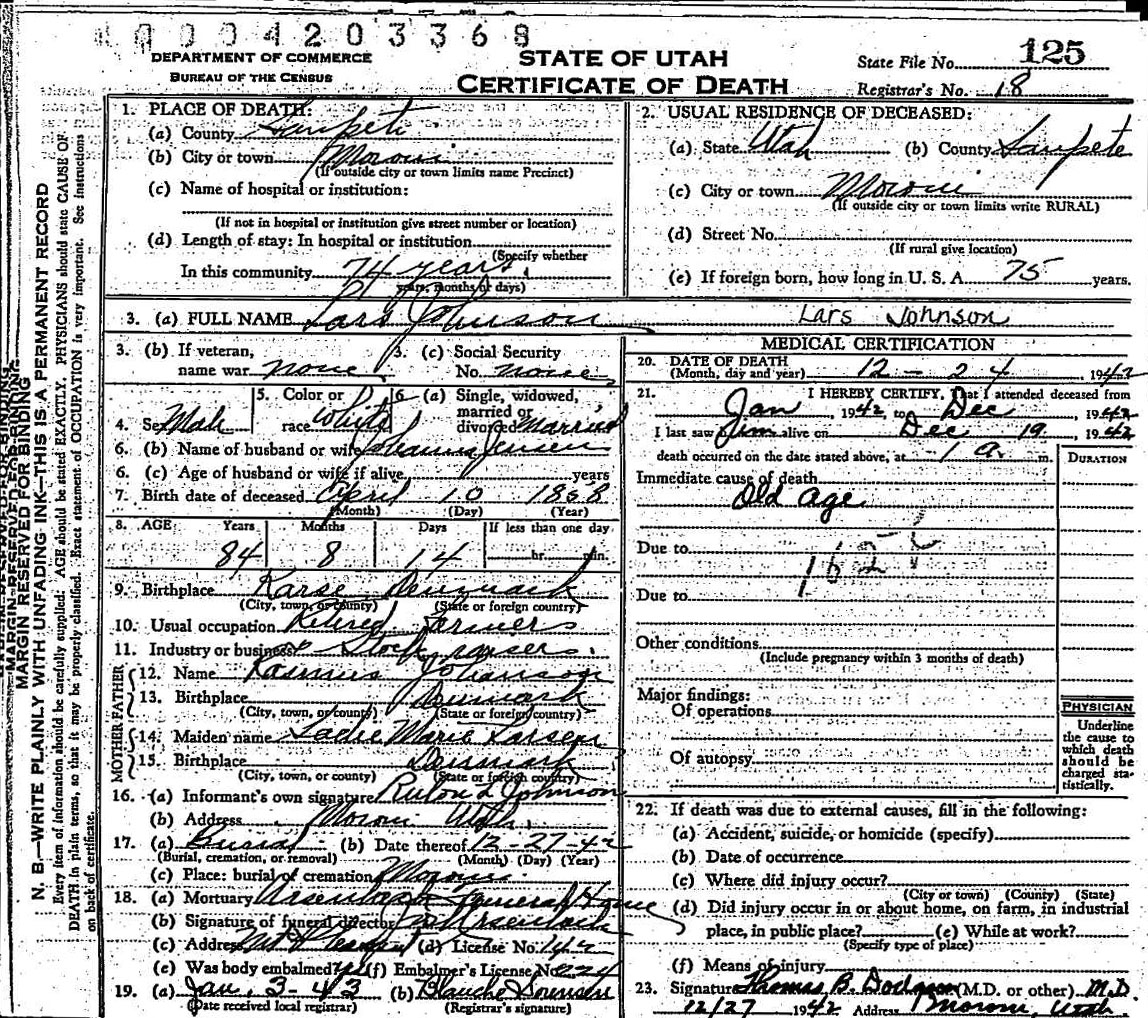 0004203368
DEPARTMENT OF COMMERCE
BUREAU OF THE CENSUS
STATE OF UTAH
CERTIFICATE OF DEATH
State File No. 125
Registrar's No. 18
MARGIN RESERVED FOR BINDING
N. B.—WRITE PLAINLY WITH UNFADING INK—THIS IS A PERMANENT RECORD
Every item of information should be carefully supplied. AGE should be stated EXACTLY. PHYSICIANS should state CAUSE OF
DEATH in plain terms, so that it may be properly classified. Exact statement of OCCUPATION is very important. See instructions
on back of certificate.
1. PLACE OF DEATH:
(a) County Sanpete
(b) City or town Moroni
(If outside city or town limits name Precinct)
(c) Name of hospital or institution:
(If not in hospital or institution give street number or location)
(d) Length of stay: In hospital or institution
(Specify whether
In this community 74 years
years, months or days)
2. USUAL RESIDENCE OF DECEASED:
(a) State Utah (b) County Sanpete
(c) City or town Moroni
(If outside city or town limits write RURAL)
(d) Street No.
(If rural give location)
(e) If foreign born, how long in U. S. A. 75 years.
3. (a) FULL NAME Lars Johnson Lars Johnson
3. (b) If veteran, name war none
3. (c) Social Security No. none
4. Sex Male
5. Color or race White
6. (a) Single, widowed, married or divorced Married
6. (b) Name of husband or wife Johanna Jensen
6. (c) Age of husband or wife if alive years
7. Birth date of deceased April 10 1858
(Month) (Day) (Year)
8. AGE Years Months Days If less than one day
84 8 14 hr. min.
9. Birthplace Karse Denmark
(City, town, or county) (State or foreign country)
10. Usual occupation Retired Farmers
11. Industry or business Stock raisers
FATHER
12. Name Rasmus Johanson
13. Birthplace Denmark
(City, town, or county) (State or foreign country)
MOTHER
14. Maiden name Marie Larsen
15. Birthplace Denmark
(City, town, or county) (State or foreign country)
16. (a) Informant's own signature Rulon L Johnson
(b) Address Moroni Utah
17. (a) Burial (b) Date thereof 12-27-42
(Burial, cremation, or removal) (Month) (Day) (Year)
(c) Place: burial of cremation Moroni
18. (a) Mortuary Ursenbach Funeral Home
(b) Signature of funeral director Ursenbach
(c) Address Mt Pleasant (d) License No. 142
(e) Was body embalmed? yes (f) Embalmer's License No. 224
19. (a) Jan. 3-43 (b) Blanche Sorensen
(Date received local registrar) (Registrar's signature)
MEDICAL CERTIFICATION
20. DATE OF DEATH
(Month, day and year) 12 - 24 1942
21. I HEREBY CERTIFY, That I attended deceased from
Jan 1942, to Dec 1942
I last saw him alive on Dec 19 1942
death occurred on the date stated above, at 1 a. m.
DURATION
Immediate cause of death
Old age
Due to
162
Due to
Other conditions
(Include pregnancy within 3 months of death)
Major findings:
Of operations
Of autopsy
PHYSICIAN
Underline
the cause to
which death
should be
charged sta-
tistically.
22. If death was due to external causes, fill in the following:
(a) Accident, suicide, or homicide (specify)
(b) Date of occurrence
(c) Where did injury occur?
(City or town) (County) (State)
(d) Did injury occur in or about home, on farm, in industrial
place, in public place? (e) While at work?
(Specify type of place)
(f) Means of injury
23. Signature Thomas B. Dodson (M.D. or other) M.D.
12/27 1942 Address Moroni, Utah